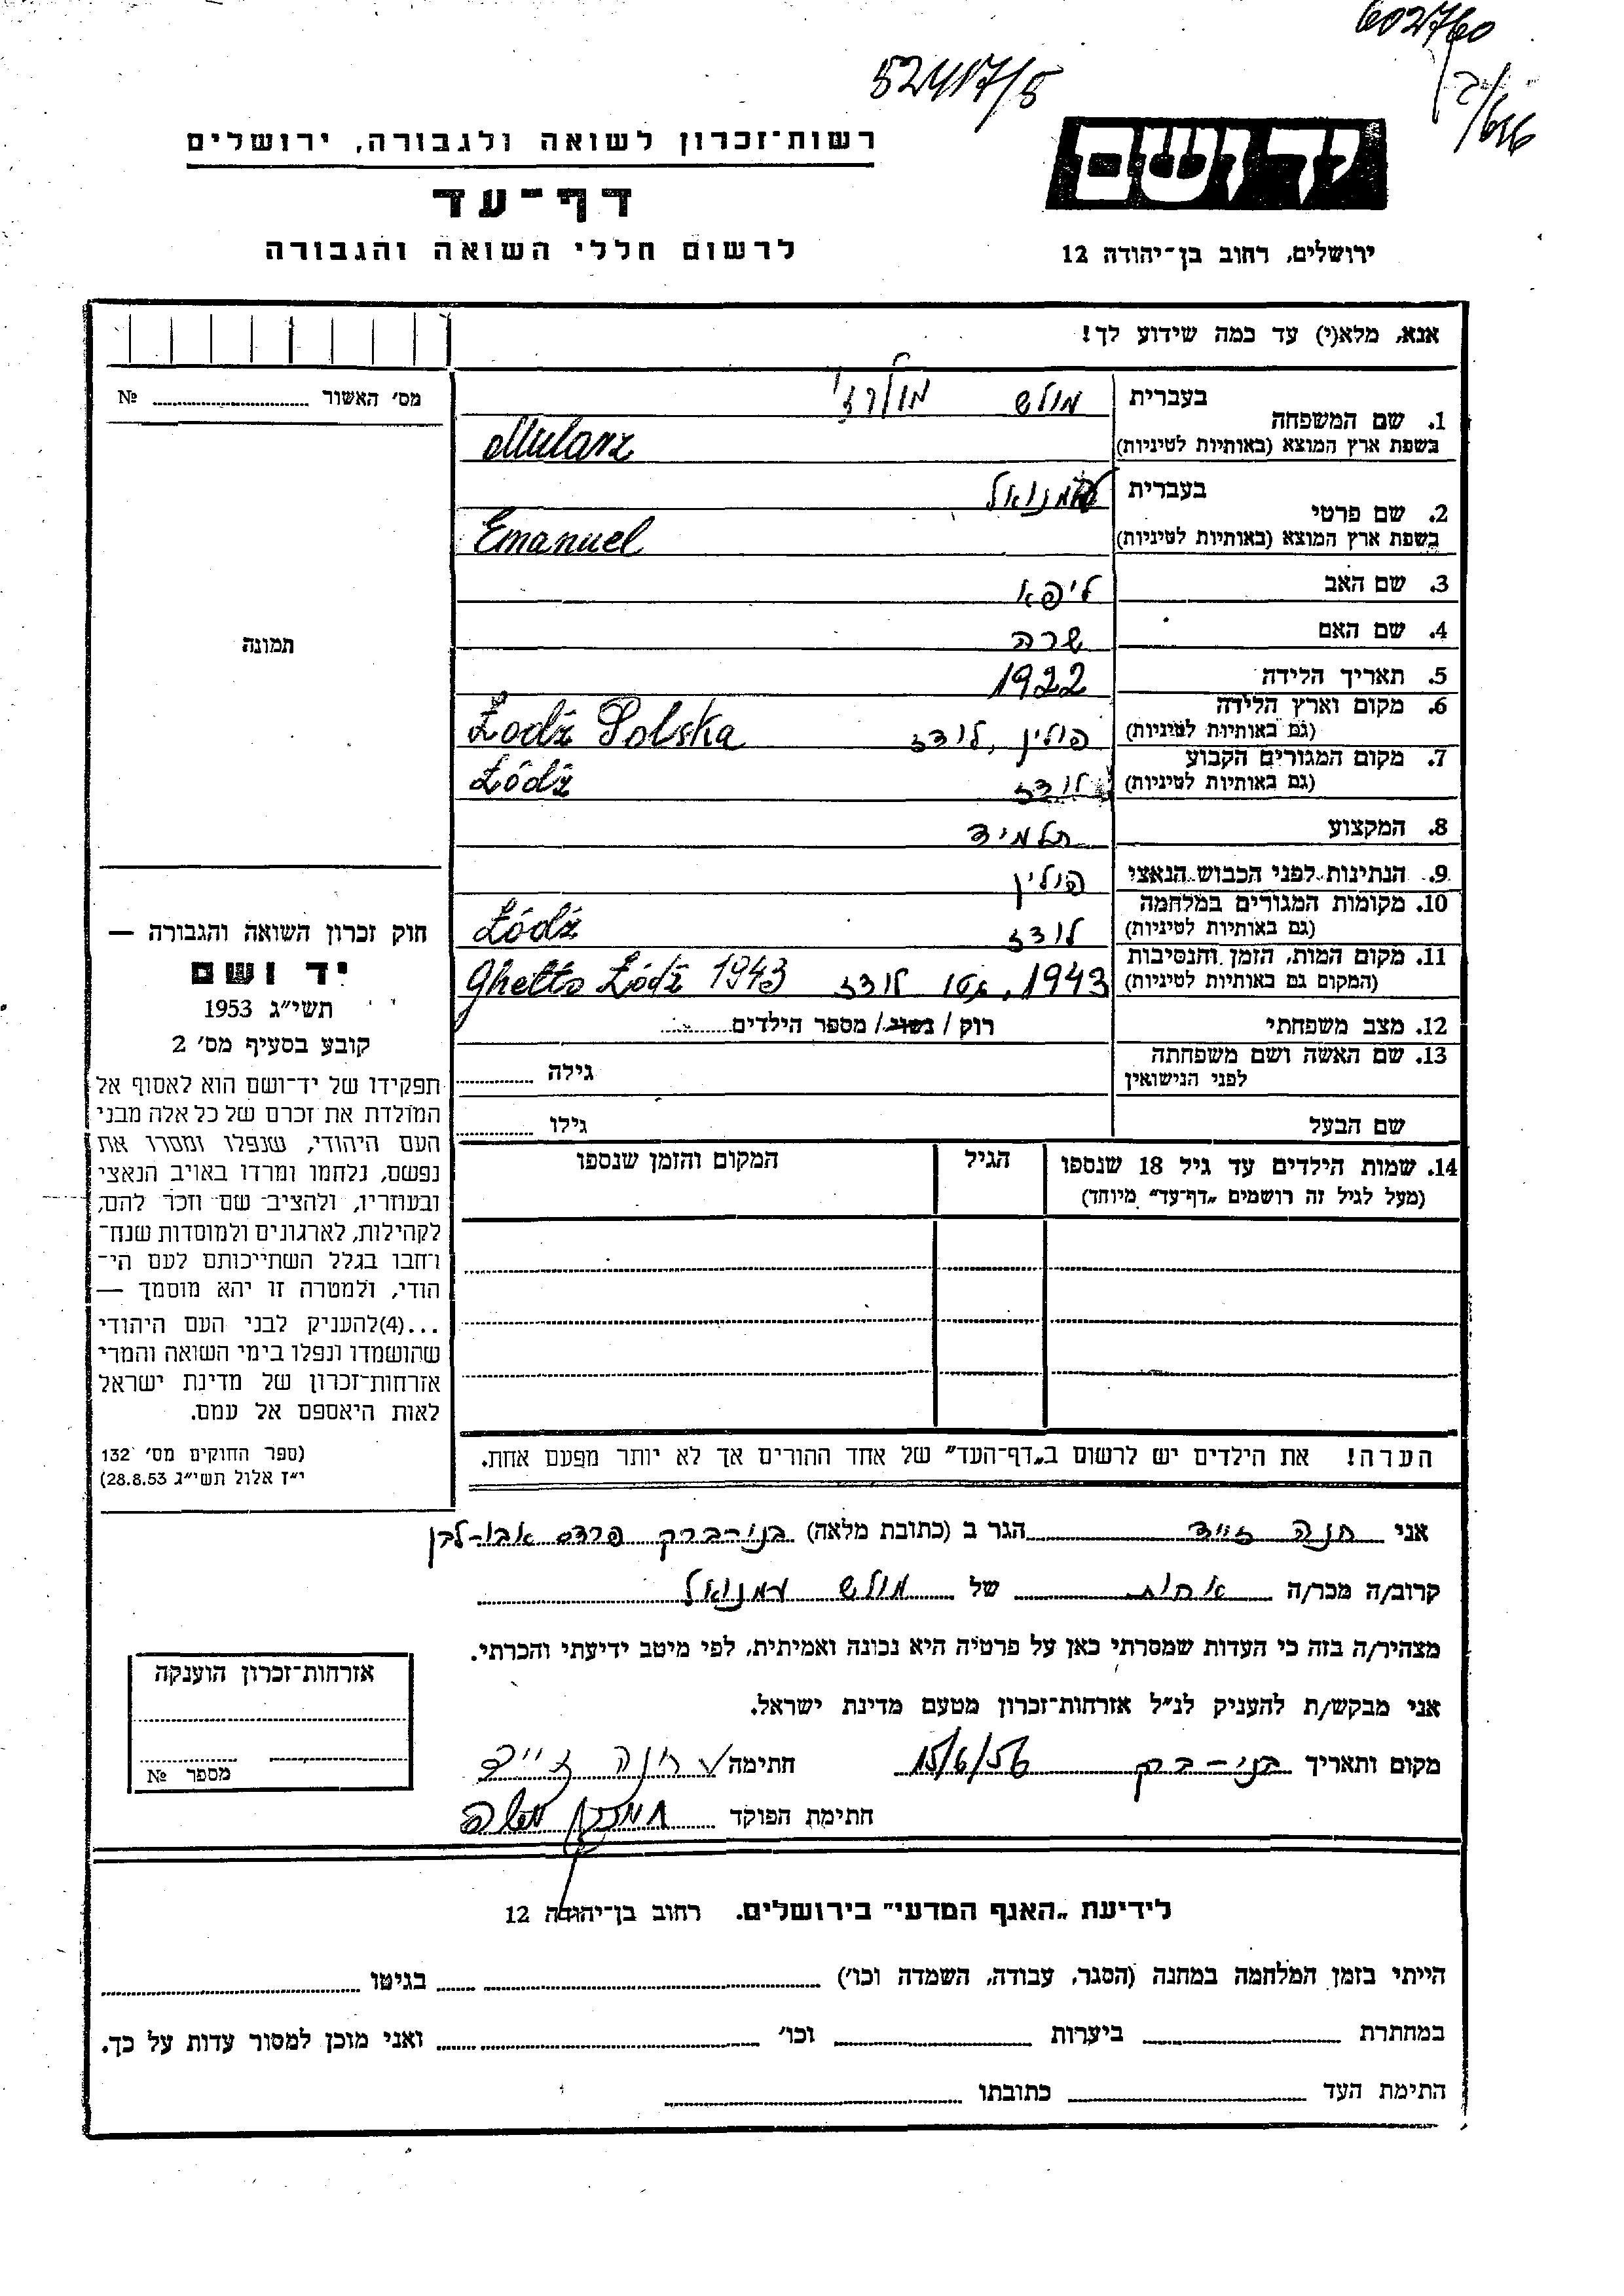 602760
52417/5
רשות־זכרון לשואה ולגבורה, ירושלים
דף־עד
לרשום חללי השואה והגבורה
יד ושם
ירושלים, רחוב בן־יהודה 12
אנא, מלא(י) עד כמה שידוע לך!
מס' האשור № 
1. שם המשפחה
בעברית מולש
בשפת ארץ המוצא (באותיות לטיניות) Mularz
2. שם פרטי
בעברית עמנואל
בשפת ארץ המוצא (באותיות לטיניות) Emanuel
3. שם האב ליפא
4. שם האם שרה
5. תאריך הלידה 1922
6. מקום וארץ הלידה (גם באותיות לטיניות) פולין, לודז Łodź Polska
7. מקום המגורים הקבוע (גם באותיות לטיניות) לודז Łódź
8. המקצוע תלמיד
9. הנתינות לפני הכבוש הנאצי פולין
10. מקומות המגורים במלחמה (גם באותיות לטיניות) לודז Łódź
11. מקום המות, הזמן והנסיבות (המקום גם באותיות לטיניות) 1943, גטו לודז Ghetto Łódź 1943
12. מצב משפחתי רוק / נשוי / מספר הילדים
13. שם האשה ושם משפחתה לפני הנישואין גילה
שם הבעל גילו
14. שמות הילדים עד גיל 18 שנספו (מעל לגיל זה רושמים „דף־עד" מיוחד)
הגיל
המקום והזמן שנספו
הערה! את הילדים יש לרשום ב„דף־העד" של אחד ההורים אך לא יותר מפעם אחת.
תמונה
חוק זכרון השואה והגבורה —
יד ושם
תשי״ג 1953
קובע בסעיף מס' 2
תפקידו של יד־ושם הוא לאסוף אל
המולדת את זכרם של כל אלה מבני
העם היהודי, שנפלו ומסרו את
נפשם, נלחמו ומרדו באויב הנאצי
ובעוזריו, ולהציב שם וזכר להם,
לקהילות, לארגונים ולמוסדות שנח־
רחבו בגלל השתייכותם לעם הי־
הודי, ולמטרה זו יהא מוסמך —
...(4) להעניק לבני העם היהודי
שהושמדו ונפלו בימי השואה והמרי
אזרחות־זכרון של מדינת ישראל
לאות היאספם אל עמם.
(ספר החוקים מס' 132
י״ז אלול תשי״ג 28.8.53)
אני חנה זייד הגר ב (כתובת מלאה) בני־ברק פרדס אבו־לבן
קרוב/ה מכר/ה אחות של מולש עמנואל
מצהיר/ה בזה כי העדות שמסרתי כאן על פרטיה היא נכונה ואמיתית, לפי מיטב ידיעתי והכרתי.
אני מבקש/ת להעניק לנ״ל אזרחות־זכרון מטעם מדינת ישראל.
מקום ותאריך בני־ברק 15/6/56 חתימה חנה זייד
חתימת הפוקד
אזרחות־זכרון הוענקה
מספר №
לידיעת „האגף המדעי" בירושלים. רחוב בן־יהודה 12
הייתי בזמן המלחמה במחנה (הסגר, עבודה, השמדה וכו') בגיטו
במחתרת ביערות וכו' ואני מוכן למסור עדות על כך.
התימת העד כתובתו